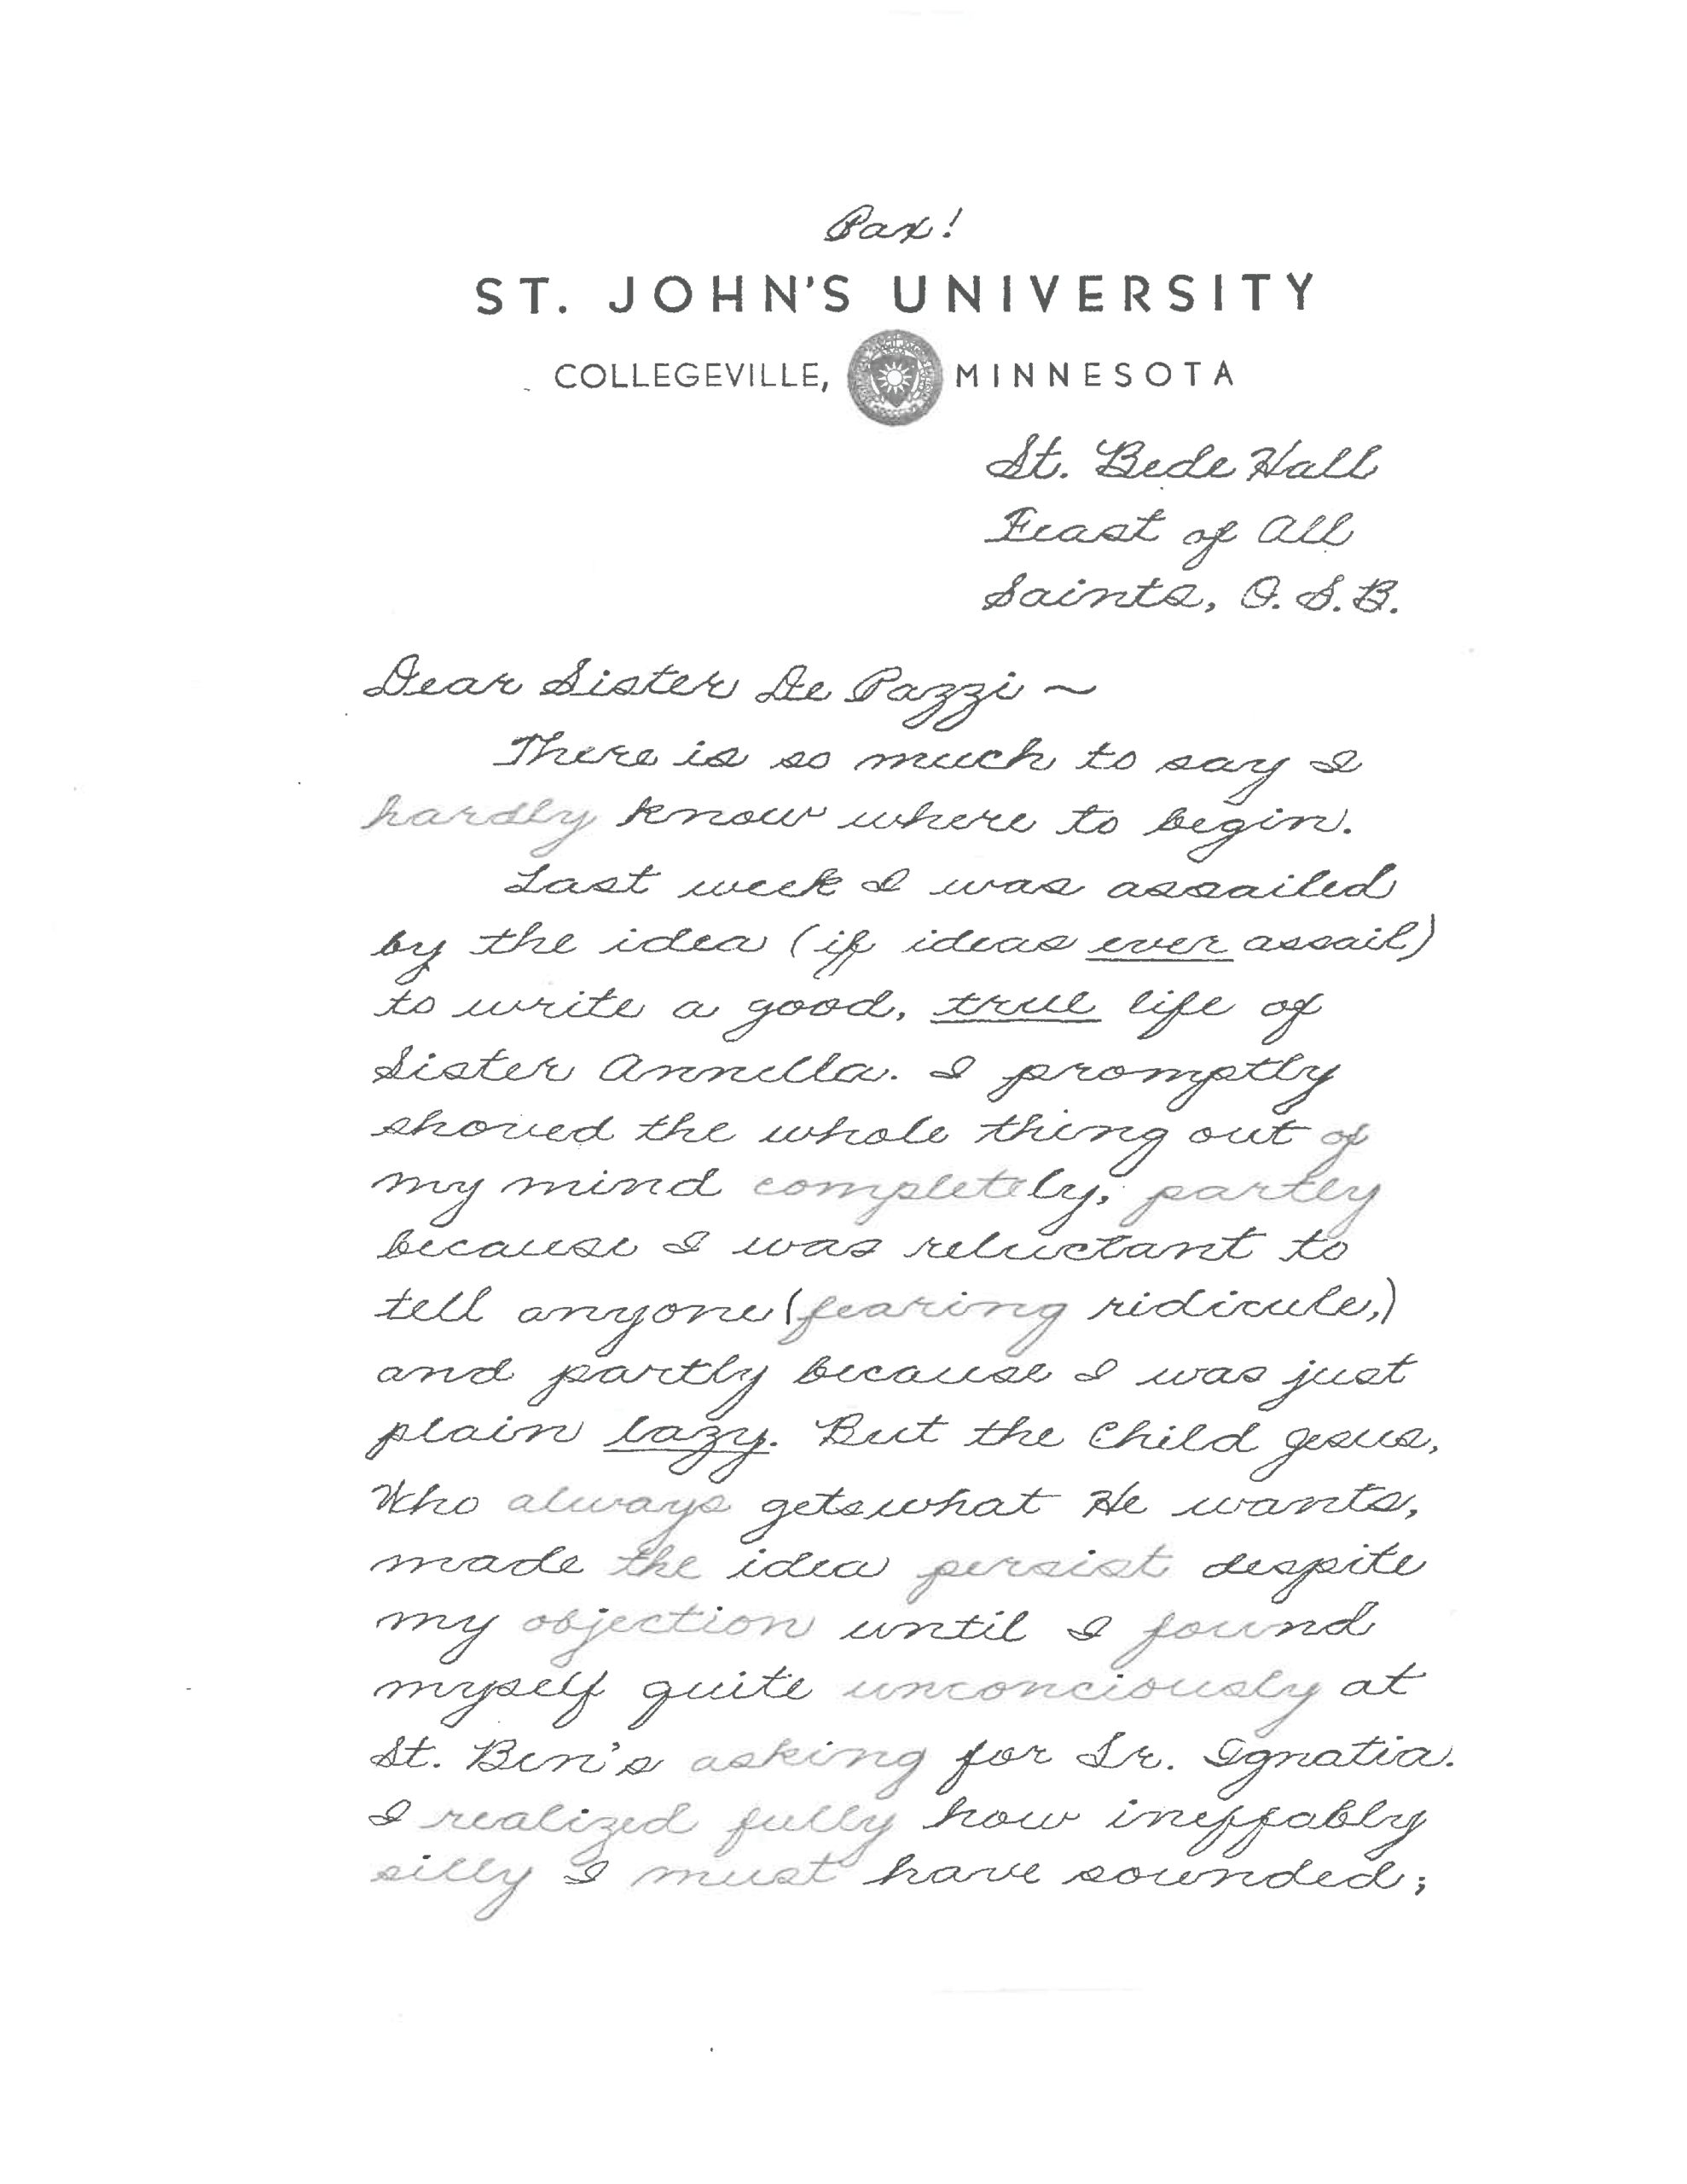 Pax!
ST. JOHN'S UNIVERSITY
COLLEGEVILLE, MINNESOTA
St. Bede Hall
Feast of All
Saints, O.S.B.
Dear Sister De Pazzi ~
There is so much to say I
hardly know where to begin.
Last week I was assailed
by the idea (if ideas ever assail)
to write a good, true life of
Sister Annella. I promptly
shoved the whole thing out of
my mind completely, partly
because I was reluctant to
tell anyone (fearing ridicule,)
and partly because I was just
plain lazy. But the Child Jesus,
Who always gets what He wants,
made the idea persist despite
my objection until I found
myself quite unconciously at
St. Ben's asking for Sr. Ignatia.
I realized fully how ineffably
silly I must have sounded;